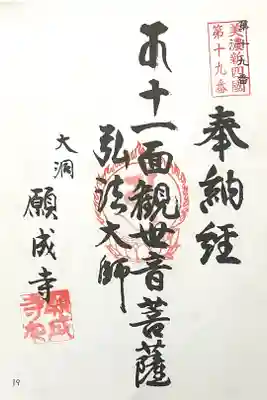 美濃新四國
第十九番
奉納経
十一面観世音菩薩
弘法大師
大洞
願成寺
19